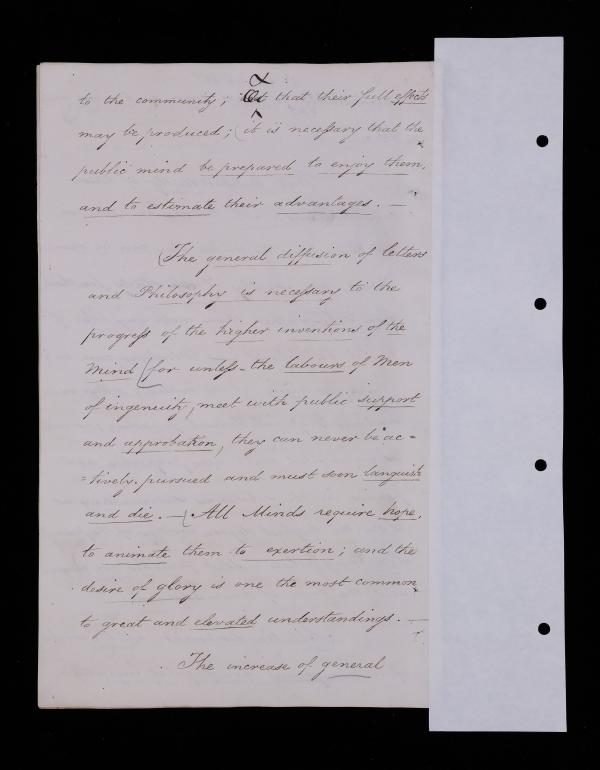 to the community; & that their full effects
may be produced; (it is necessary that the
public mind be prepared to enjoy them,
and to estimate their advantages. —
(The general diffusion of letters
and Philosophy is necessary to the
progress of the higher inventions of the
Mind (for unless the labours of Men
of ingenuity, meet with public support
and approbation, they can never be ac=
=tively pursued and must soon languish
and die. — (All Minds require hope,
to animate them to exertion; and the
desire of glory is one the most common
to great and elevated understandings. —
The increase of general